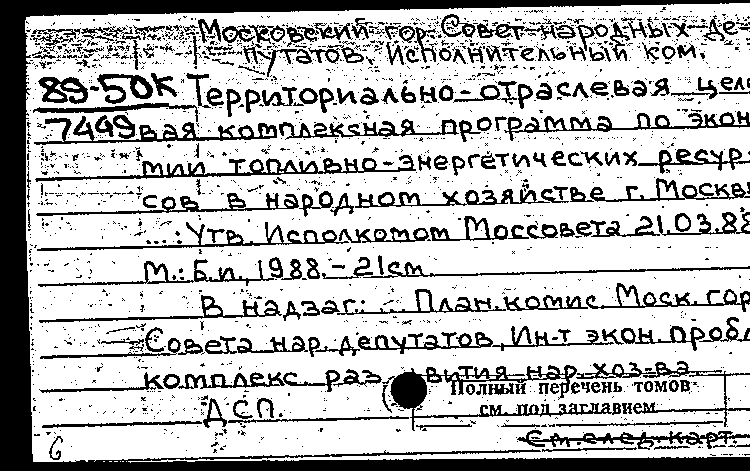 Московский гор. Совет народных де-
путатов. Исполнительный ком.
89-50К Территориально-отраслевая целе
7449 вая комплексная программа по экон
мии топливно-энергетических ресур-
сов в народном хозяйстве г. Москвы
...: Утв. Исполкомом Моссовета 21.03.88
М.: Б.и., 1988. - 21см.
В надзаг.: ... План. комис. Моск. гор
Совета нар. депутатов, Ин-т экон. пробл
комплекс. развития нар. хоз-ва
ДСП.
Полный перечень томов
см. под заглавием
См. след. карт.
6